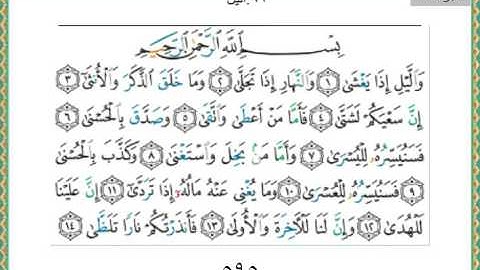 بِسْمِ اللَّهِ الرَّحْمَٰنِ الرَّحِيمِ
وَاللَّيْلِ إِذَا يَغْشَىٰ ١ وَالنَّهَارِ إِذَا تَجَلَّىٰ ٢ وَمَا خَلَقَ الذَّكَرَ وَالْأُنثَىٰ ٣
إِنَّ سَعْيَكُمْ لَشَتَّىٰ ٤ فَأَمَّا مَنْ أَعْطَىٰ وَاتَّقَىٰ ٥ وَصَدَّقَ بِالْحُسْنَىٰ ٦
فَسَنُيَسِّرُهُ لِلْيُسْرَىٰ ٧ وَأَمَّا مَنْ بَخِلَ وَاسْتَغْنَىٰ ٨ وَكَذَّبَ بِالْحُسْنَىٰ
٩ فَسَنُيَسِّرُهُ لِلْعُسْرَىٰ ١٠ وَمَا يُغْنِي عَنْهُ مَالُهُ إِذَا تَرَدَّىٰ ١١ إِنَّ عَلَيْنَا
لَلْهُدَىٰ ١٢ وَإِنَّ لَنَا لَلْآخِرَةَ وَالْأُولَىٰ ١٣ فَأَنذَرْتُكُمْ نَارًا تَلَظَّىٰ ١٤
٥٩٥